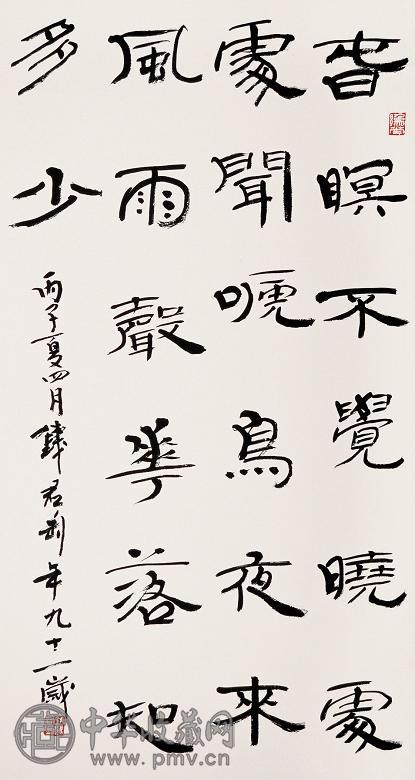 旾瞑不覺曉處
處聞嗁鳥夜來
風雨聲華落知
多少
丙子夏四月錢君匋年九十一歲
中华收藏网
www.pmv.cn